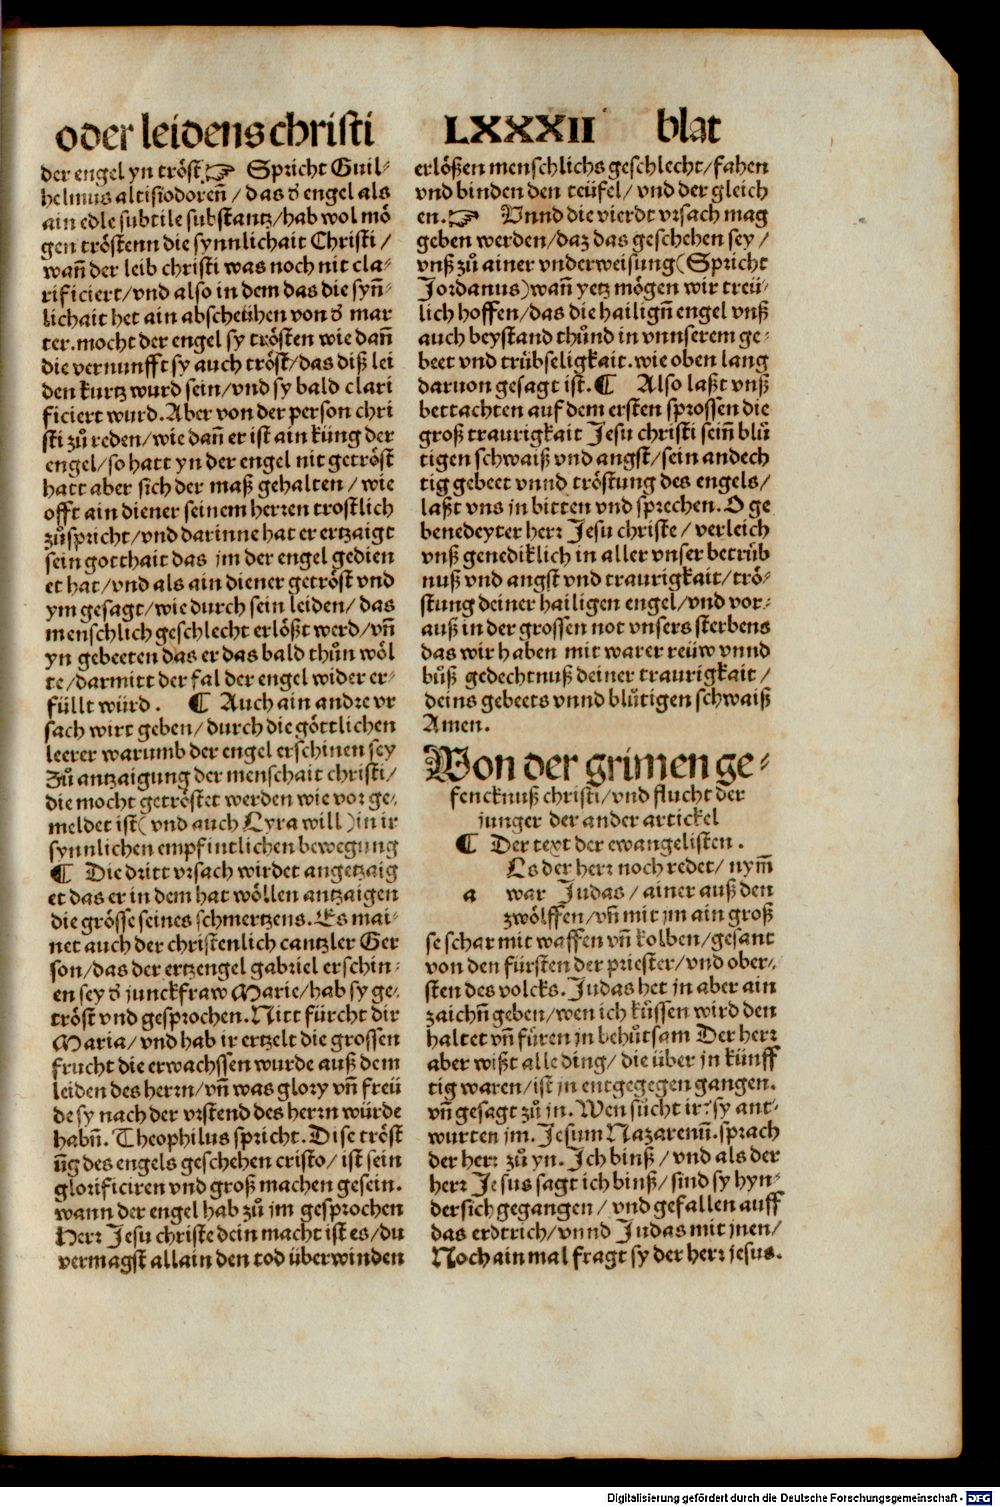 oder leidens christi LXXXII blat
der engel yn tröst.☞ Spricht Guil⸗
helmus altisiodoreñ / das ð engel als
ain edle subtile substantz/hab wol mö
gen tröstenn die synnlichait Christi /
wañ der leib christi was noch nit cla⸗
rificiert/vnd also in dem das die syñ⸗
lichait het ain abscheühen von ð mar
ter.mocht der engel sy trösten wie dañ
die vernunfft sy auch tröst/das diß lei
den kurtz wurd sein/vnd sy bald clari
ficiert wurd.Aber von der person chri
sti zů reden/wie dañ er ist ain küng der
engel/so hatt yn der engel nit getröst
hatt aber sich der maß gehalten / wie
offt ain diener seinem herren trostlich
zůspricht/vnd darinne hat er ertzaigt
sein gotthait das jm der engel gedien
et hat/vnd als ain diener getröst vnd
ym gesagt/wie durch sein leiden/ das
menschlich geschlecht erlößt werd/vñ
yn gebeeten das er das bald thůn wöl
te/darmitt der fal der engel wider er⸗
füllt würd. ¶ Auch ain andre vr
sach wirt geben/durch die göttlichen
leerer warumb der engel erschinen sey
Zů antzaigung der menschait christi/
die mocht getröstet werden wie vor ge⸗
meldet ist(vnd auch Lyra will)in ir
synnlichen empfintlichen bewegung
¶ Die dritt vrsach wirdet angetzaig
et das er in dem hat wöllen antzaigen
die grösse seines schmertzens.Es mai⸗
net auch der christenlich cantzler Ger
son/das der ertzengel gabriel erschin⸗
en sey ð junckfraw Marie/hab sy ge⸗
tröst vnd gesprochen.Nitt fürcht dir
Maria/vnd hab ir ertzelt die grossen
frucht die erwachssen wurde auß dem
leiden des herrn/vñ was glory vñ freü
de sy nach der vrstend des herrn würde
habñ. Theophilus spricht.Dise tröst
ũg des engels geschehen cristo/ist sein
glorificiren vnd groß machen gesein.
wann der engel hab zů jm gesprochen
Herr Jesu christe dein macht ist es/du
vermagst allain den tod überwinden
erlößen menschlichs geschlecht/fahen
vnd binden den teüfel/vnd der gleich
en.☞ Vnnd die vierdt vrsach mag
geben werden/daz das geschehen sey/
vnß zů ainer vnderweisung(Spricht
Jordanus)wañ yetz mögen wir treü⸗
lich hoffen/das die hailigñ engel vnß
auch beystand thůnd in vnnserem ge⸗
beet vnd trübseligkait.wie oben lang
daruon gesagt ist.¶ Also laßt vnß
bettachten auf dem ersten sprossen die
groß traurigkait Jesu christi seiñ blů
tigen schwaiß vnd angst/sein andech
tig gebeet vnnd tröstung des engels/
laßt vns jn bitten vnd sprechen.O ge
benedeyter herr Jesu christe/ verleich
vnß genediklich in aller vnser betrüb
nuß vnd angst vnd traurigkait/trö⸗
stung deiner hailigen engel/vnd vor⸗
auß in der grossen not vnsers sterbens
das wir haben mit warer reüw vnnd
bůß gedechtnuß deiner traurigkait/
deins gebeets vnnd blůtigen schwaiß
Amen.
Von der grimen ge⸗
fencknuß christi/vnd flucht der
junger der ander artickel
¶ Der text der ewangelisten.
Es der herr noch redet/ nym̃
a war Judas/ ainer auß den
zwölffen/vñ mit jm ain groß
se schar mit waffen vñ kolben/gesant
von den fürsten der priester/vnd ober⸗
sten des volcks.Judas het jn aber ain
zaichñ geben/wen ich küssen wird den
haltet vñ füren jn behůtsam Der herr
aber wißt alle ding/ die über jn künff
tig waren/ist jn entgegegen gangen.
vñ gesagt zů jn.Wen sücht ir:sy ant⸗
wurten jm.Jesum Nazarenũ.sprach
der herr zů yn.Ich binß/vnd als der
herr Jesus sagt ich binß/sind sy hyn⸗
dersich gegangen/ vnd gefallen auff
das erdtrich/vnnd Judas mit jnen/
Noch ain mal fragt sy der herr jesus.
Digitalisierung gefördert durch die Deutsche Forschungsgemeinschaft - DFG